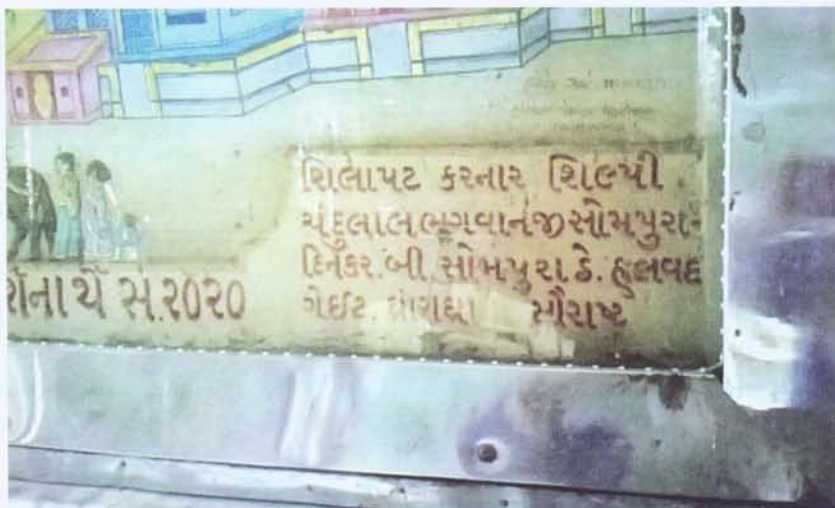 શિલાપટ કરનાર શિલ્પી
ચંદુલાલ ભગવાનજી સોમપુરા-
દિનકર. બી. સોમપુરા ઠે. હલવદ
ગેઈટ. ધ્રાંગધ્રા સૌરાષ્ટ્ર
ર્શનાર્થે સં. ૨૦૨૦